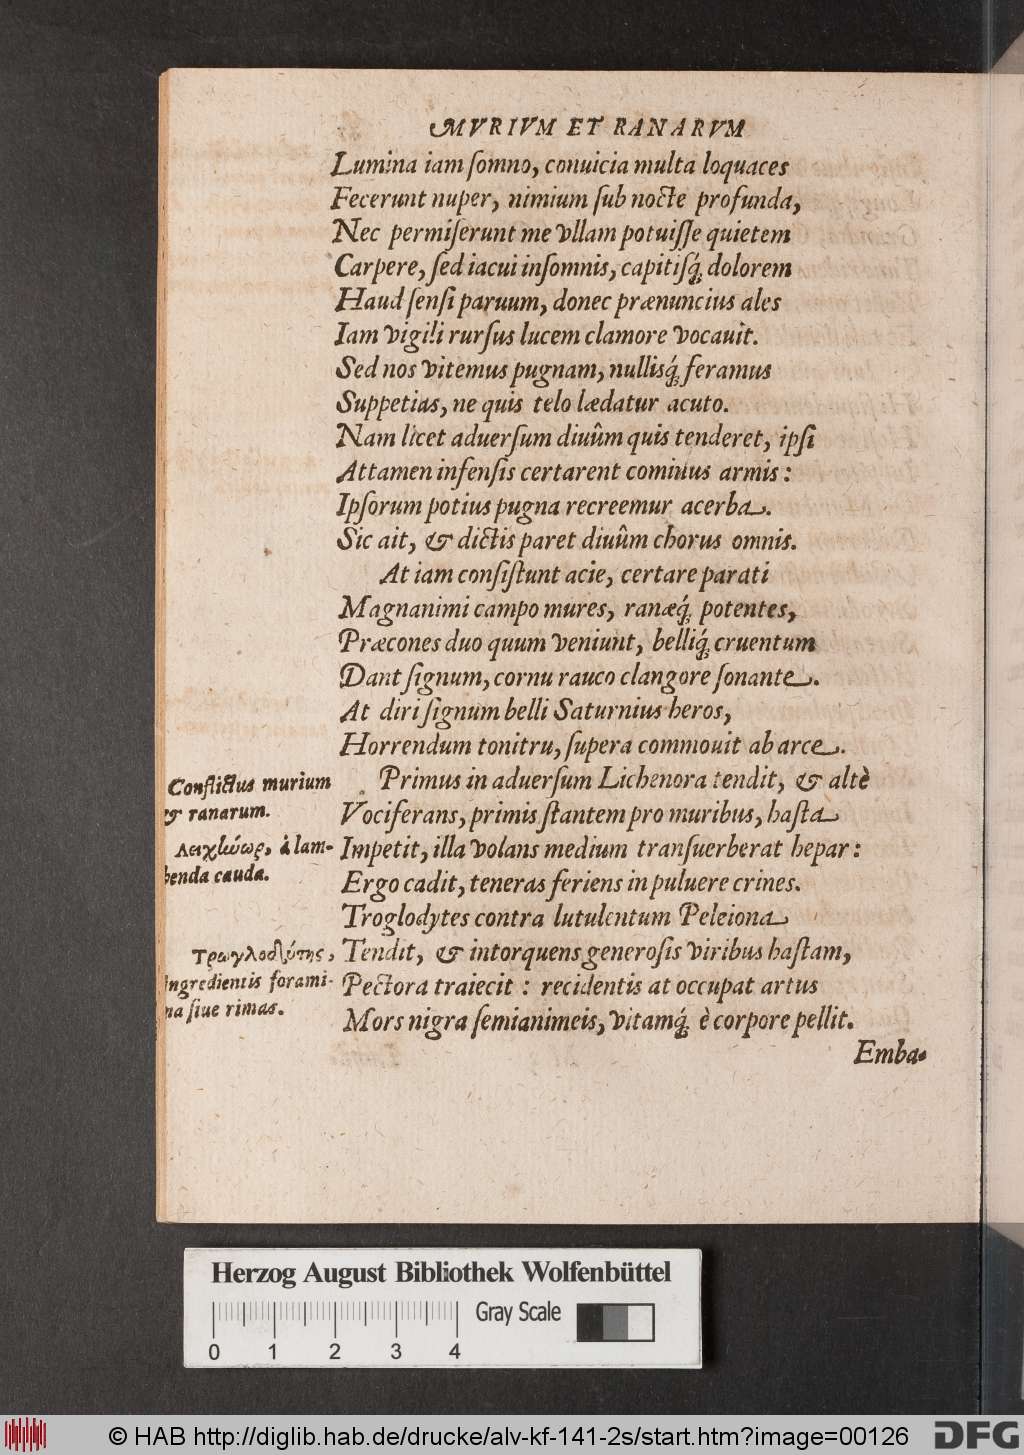 MVRIVM ET RANARVM
Lumina iam ſomno, conuicia multa loquaces
Fecerunt nuper, nimium ſub nocte profunda,
Nec permiſerunt me vllam potuiſſe quietem
Carpere, ſed iacui inſomnis, capitiſq́; dolorem
Haud ſenſi paruum, donec prænuncius ales
Iam vigili rurſus lucem clamore vocauit.
Sed nos vitemus pugnam, nullisq́; feramus
Suppetias, ne quis telo lædatur acuto.
Nam licet aduerſum diuûm quis tenderet, ipſi
Attamen infenſis certarent cominus armis:
Ipſorum potius pugna recreemur acerba.
Sic ait, & dictis paret diuûm chorus omnis.
At iam conſiſtunt acie, certare parati
Magnanimi campo mures, ranæq́; potentes,
Præcones duo quum veniunt, belliq́; cruentum
Dant ſignum, cornu rauco clangore ſonante.
At diri ſignum belli Saturnius heros,
Horrendum tonitru, ſupera commouit ab arce.
Conflictus murium
& ranarum.
Primus in aduerſum Lichenora tendit, & altè
Vociferans, primis ſtantem pro muribus, haſta
Λειχήνωρ, à lam-
benda cauda.
Impetit, illa volans medium tranſuerberat hepar:
Ergo cadit, teneras feriens in puluere crines.
Troglodytes contra lutulentum Peleiona
Τρωγλοδύτης,
ingredientis forami-
na ſiue rimas.
Tendit, & intorquens generoſis viribus haſtam,
Pectora traiecit: recidentis at occupat artus
Mors nigra ſemianimeis, vitamq́; è corpore pellit.
Emba-
Herzog August Bibliothek Wolfenbüttel
Gray Scale
0 1 2 3 4
© HAB http://diglib.hab.de/drucke/alv-kf-141-2s/start.htm?image=00126
DFG